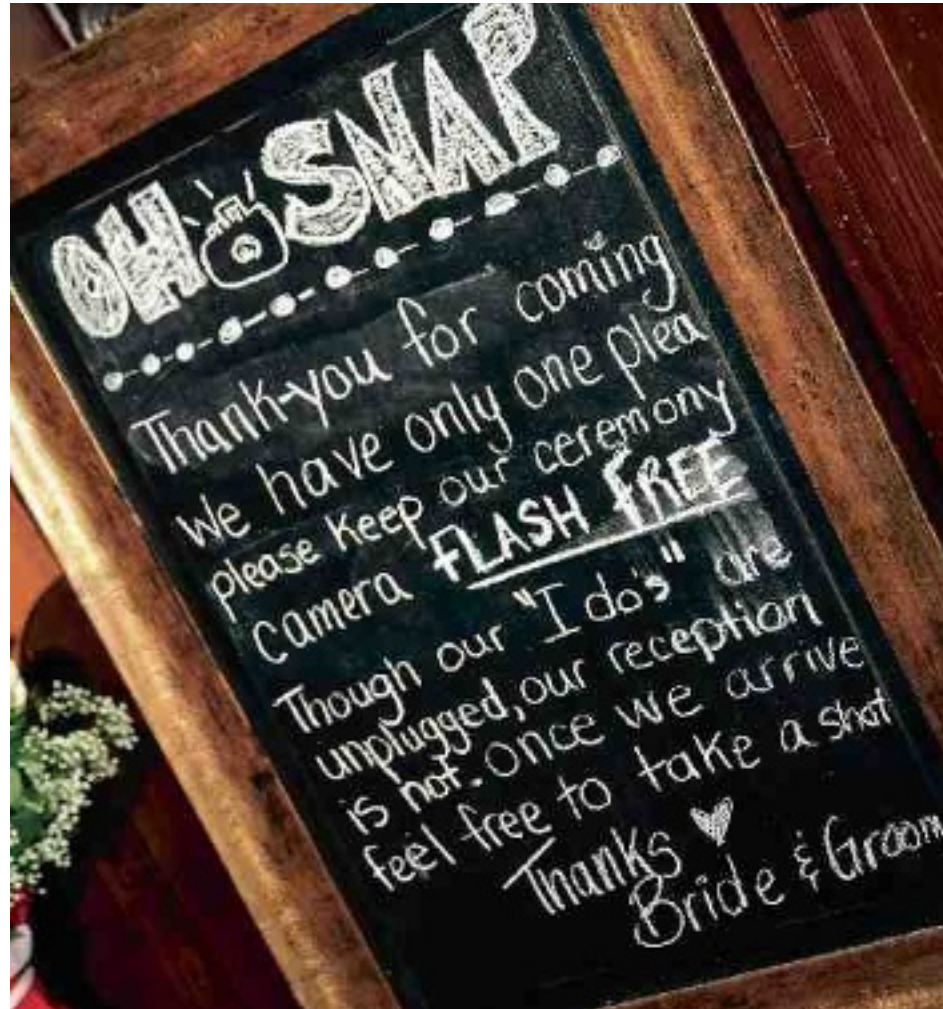 OH SNAP
Thank-you for coming
we have only one plea
please keep our ceremony
camera FLASH FREE
Though our "I do's" are
unplugged, our reception
is not. once we arrive
feel free to take a shot
Thanks
Bride & Groom